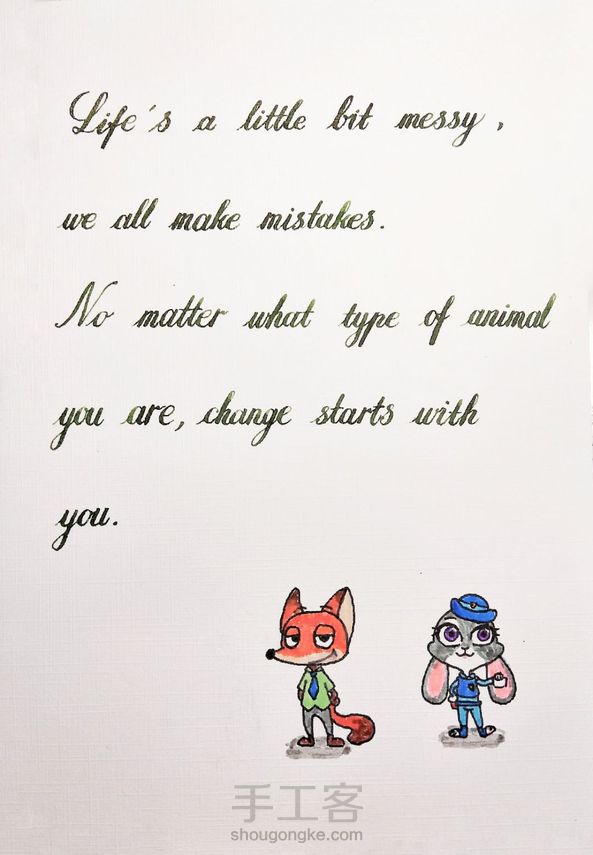 Life's a little bit messy,
we all make mistakes.
No matter what type of animal
you are, change starts with
you.
手工客
shougongke.com